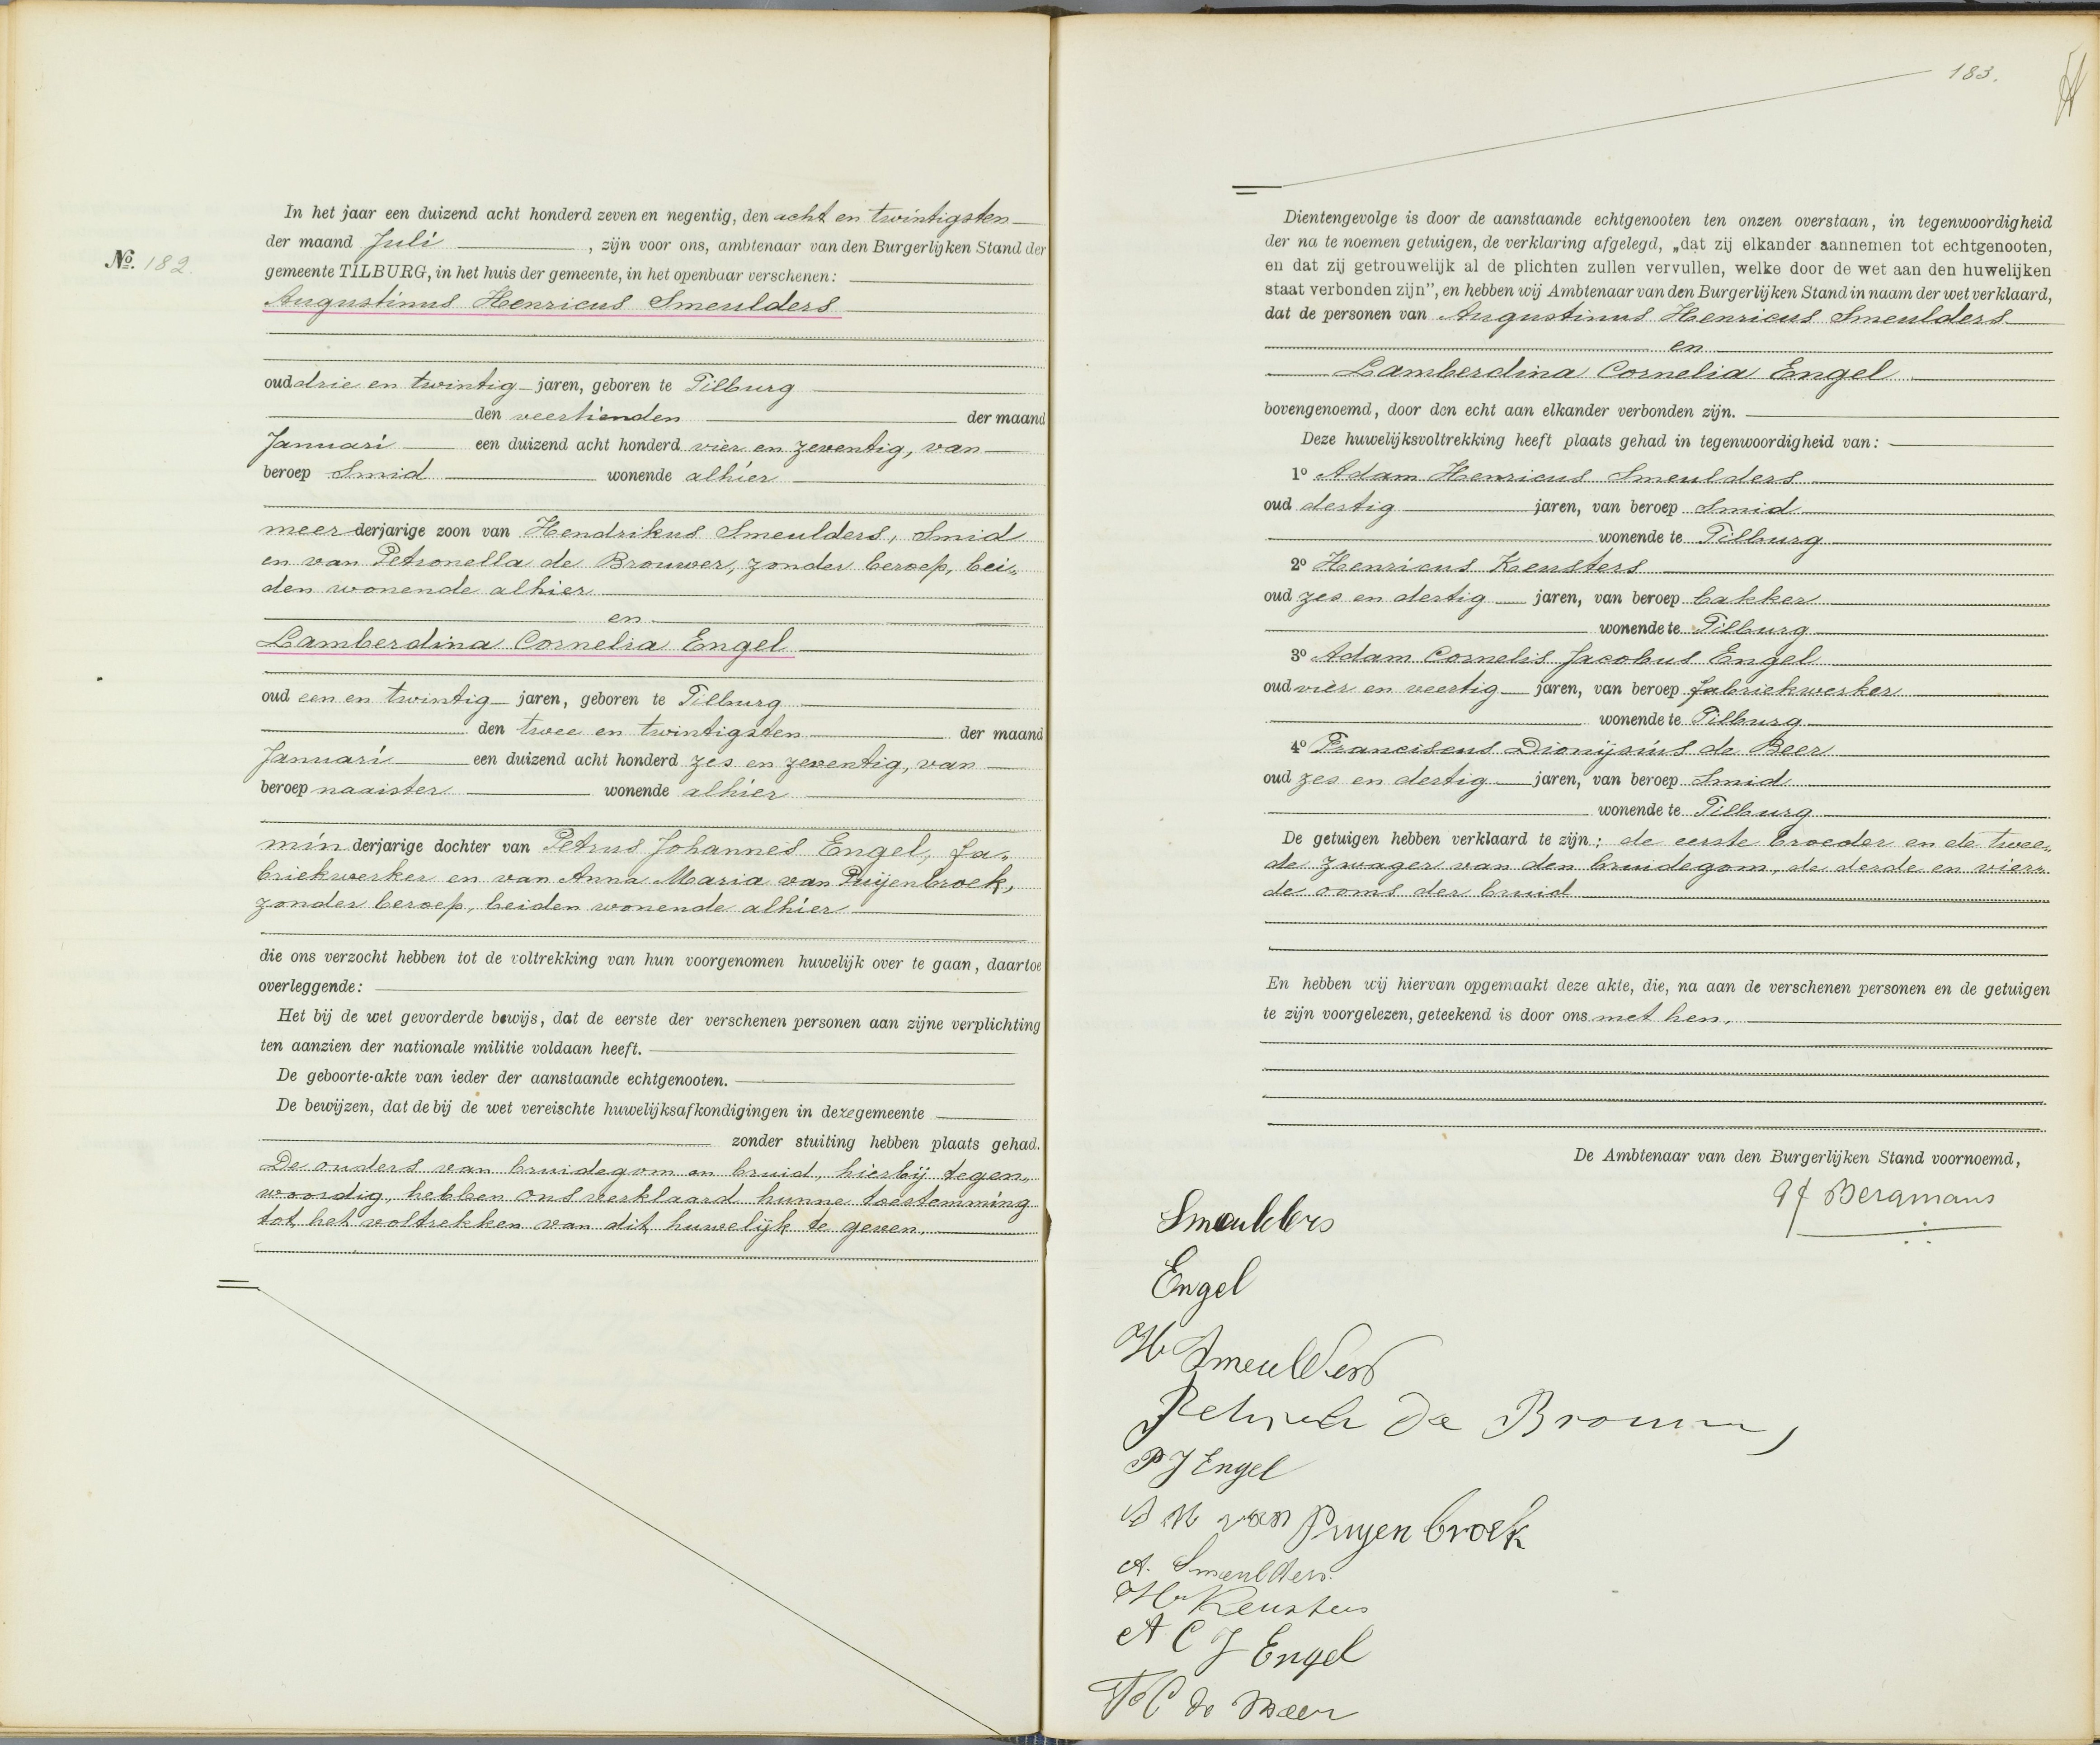 In het jaar een duizend acht honderd zeven en negentig, den acht en twintigsten
der maand Juli , zijn voor ons, ambtenaar van den Burgerlijken Stand der
No. 182.
gemeente TILBURG, in het huis der gemeente, in het openbaar verschenen:
Augustinus Henricus Smeulders
oud drie en twintig jaren, geboren te Tilburg
den veertienden der maand
Januari een duizend acht honderd vier en zeventig, van
beroep Smid wonende alhier
meerderjarige zoon van Hendrikus Smeulders, Smid
en van Petronella de Brouwer, zonder beroep, bei„
den wonende alhier
en
Lamberdina Cornelia Engel
oud een en twintig jaren, geboren te Tilburg
den twee en twintigsten der maand
Januari een duizend acht honderd zes en zeventig, van
beroep naaister wonende alhier
minderjarige dochter van Petrus Johannes Engel, fa„
briekwerker en van Anna Maria van Puijenbroek,
zonder beroep, beiden wonende alhier
die ons verzocht hebben tot de voltrekking van hun voorgenomen huwelijk over te gaan, daartoe
overleggende:
Het bij de wet gevorderde bewijs, dat de eerste der verschenen personen aan zijne verplichting
ten aanzien der nationale militie voldaan heeft.
De geboorte-akte van ieder der aanstaande echtgenooten.
De bewijzen, dat de bij de wet vereischte huwelijksafkondigingen in deze gemeente
zonder stuiting hebben plaats gehad.
De ouders van bruidegom en bruid, hierbij tegen„
woordig, hebben ons verklaard hunne toestemming
tot het voltrekken van dit huwelijk te geven.
183.
Dientengevolge is door de aanstaande echtgenooten ten onzen overstaan, in tegenwoordigheid
der na te noemen getuigen, de verklaring afgelegd, „dat zij elkander aannemen tot echtgenooten,
en dat zij getrouwelijk al de plichten zullen vervullen, welke door de wet aan den huwelijken
staat verbonden zijn", en hebben wij Ambtenaar van den Burgerlijken Stand in naam der wet verklaard,
dat de personen van Augustinus Henricus Smeulders
en
Lamberdina Cornelia Engel
bovengenoemd, door den echt aan elkander verbonden zijn.
Deze huwelijksvoltrekking heeft plaats gehad in tegenwoordigheid van:
1o Adam Henricus Smeulders
oud dertig jaren, van beroep Smid
wonende te Tilburg
2o Henricus Keusters
oud zes en dertig jaren, van beroep bakker
wonende te Tilburg
3o Adam Cornelis Jacobus Engel
oud vier en veertig jaren, van beroep fabriekwerker
wonende te Tilburg
4o Franciscus Dionijsius de Beer
oud zes en dertig jaren, van beroep Smid
wonende te Tilburg
De getuigen hebben verklaard te zijn: de eerste broeder en de twee„
de zwager van den bruidegom, de derde en vier„
de ooms der bruid
En hebben wij hiervan opgemaakt deze akte, die, na aan de verschenen personen en de getuigen
te zijn voorgelezen, geteekend is door ons met hen.
De Ambtenaar van den Burgerlijken Stand voornoemd,
Bergmans
Smeulders
Engel
H Smeulders
de Brouwer
P J Engel
A M van Puyenbroek
A. Smeulders
H Keusters
A C J Engel
de Beer